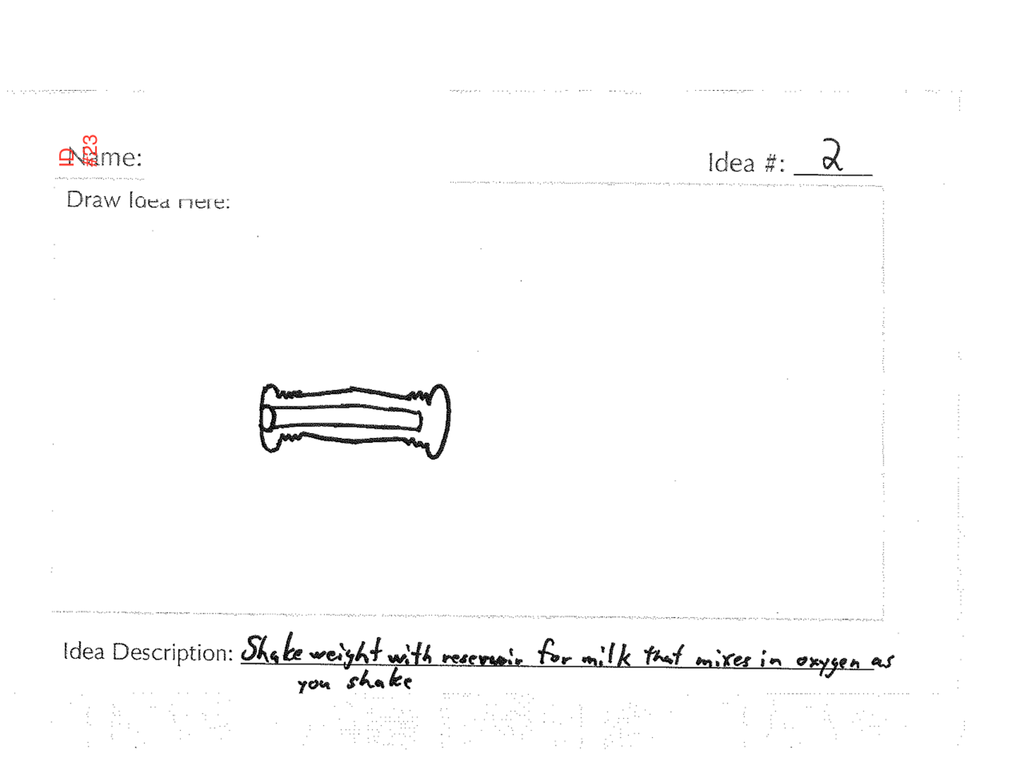 ID
#23
Name:
Idea #: 2
Draw Idea Here:
Idea Description: Shake weight with reservoir for milk that mixes in oxygen as
you shake